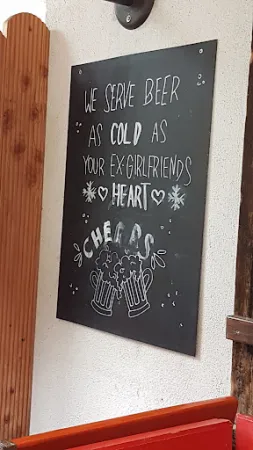 WE SERVE BEER
AS COLD AS
YOUR EX-GIRLFRIENDS
HEART
CHEERS